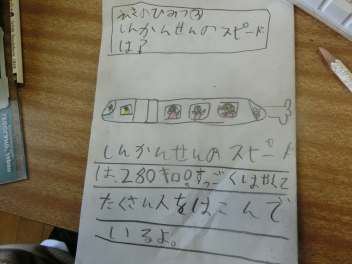 しんかんせんのスピード
は?
しんかんせんのスピード
は、280キロ。すっごくはやくて
たくさん人をはこんで
いるよ。